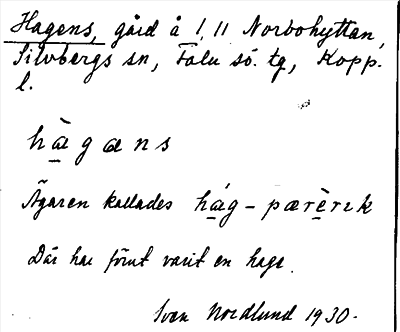 Hagens, gård å 1, 11 Norbohyttan,
Silvbergs sn, Falu sö. tg, Kopp.
l.
hàgæns
Ägaren kallades hág-pærèrɪk
Där har förut varit en hage.
Sven Nordlund 1930.